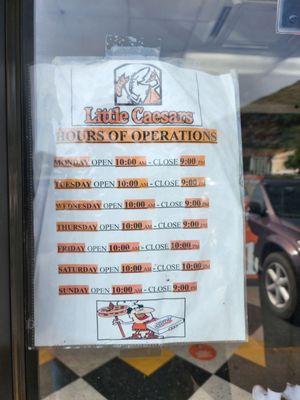 Little Caesars
HOURS OF OPERATIONS
MONDAY OPEN 10:00 AM - CLOSE 9:00 PM
TUESDAY OPEN 10:00 AM - CLOSE 9:00 PM
WEDNESDAY OPEN 10:00 AM - CLOSE 9:00 PM
THURSDAY OPEN 10:00 AM - CLOSE 9:00 PM
FRIDAY OPEN 10:00 AM - CLOSE 10:00 PM
SATURDAY OPEN 10:00 AM - CLOSE 10:00 PM
SUNDAY OPEN 10:00 AM - CLOSE 9:00 PM